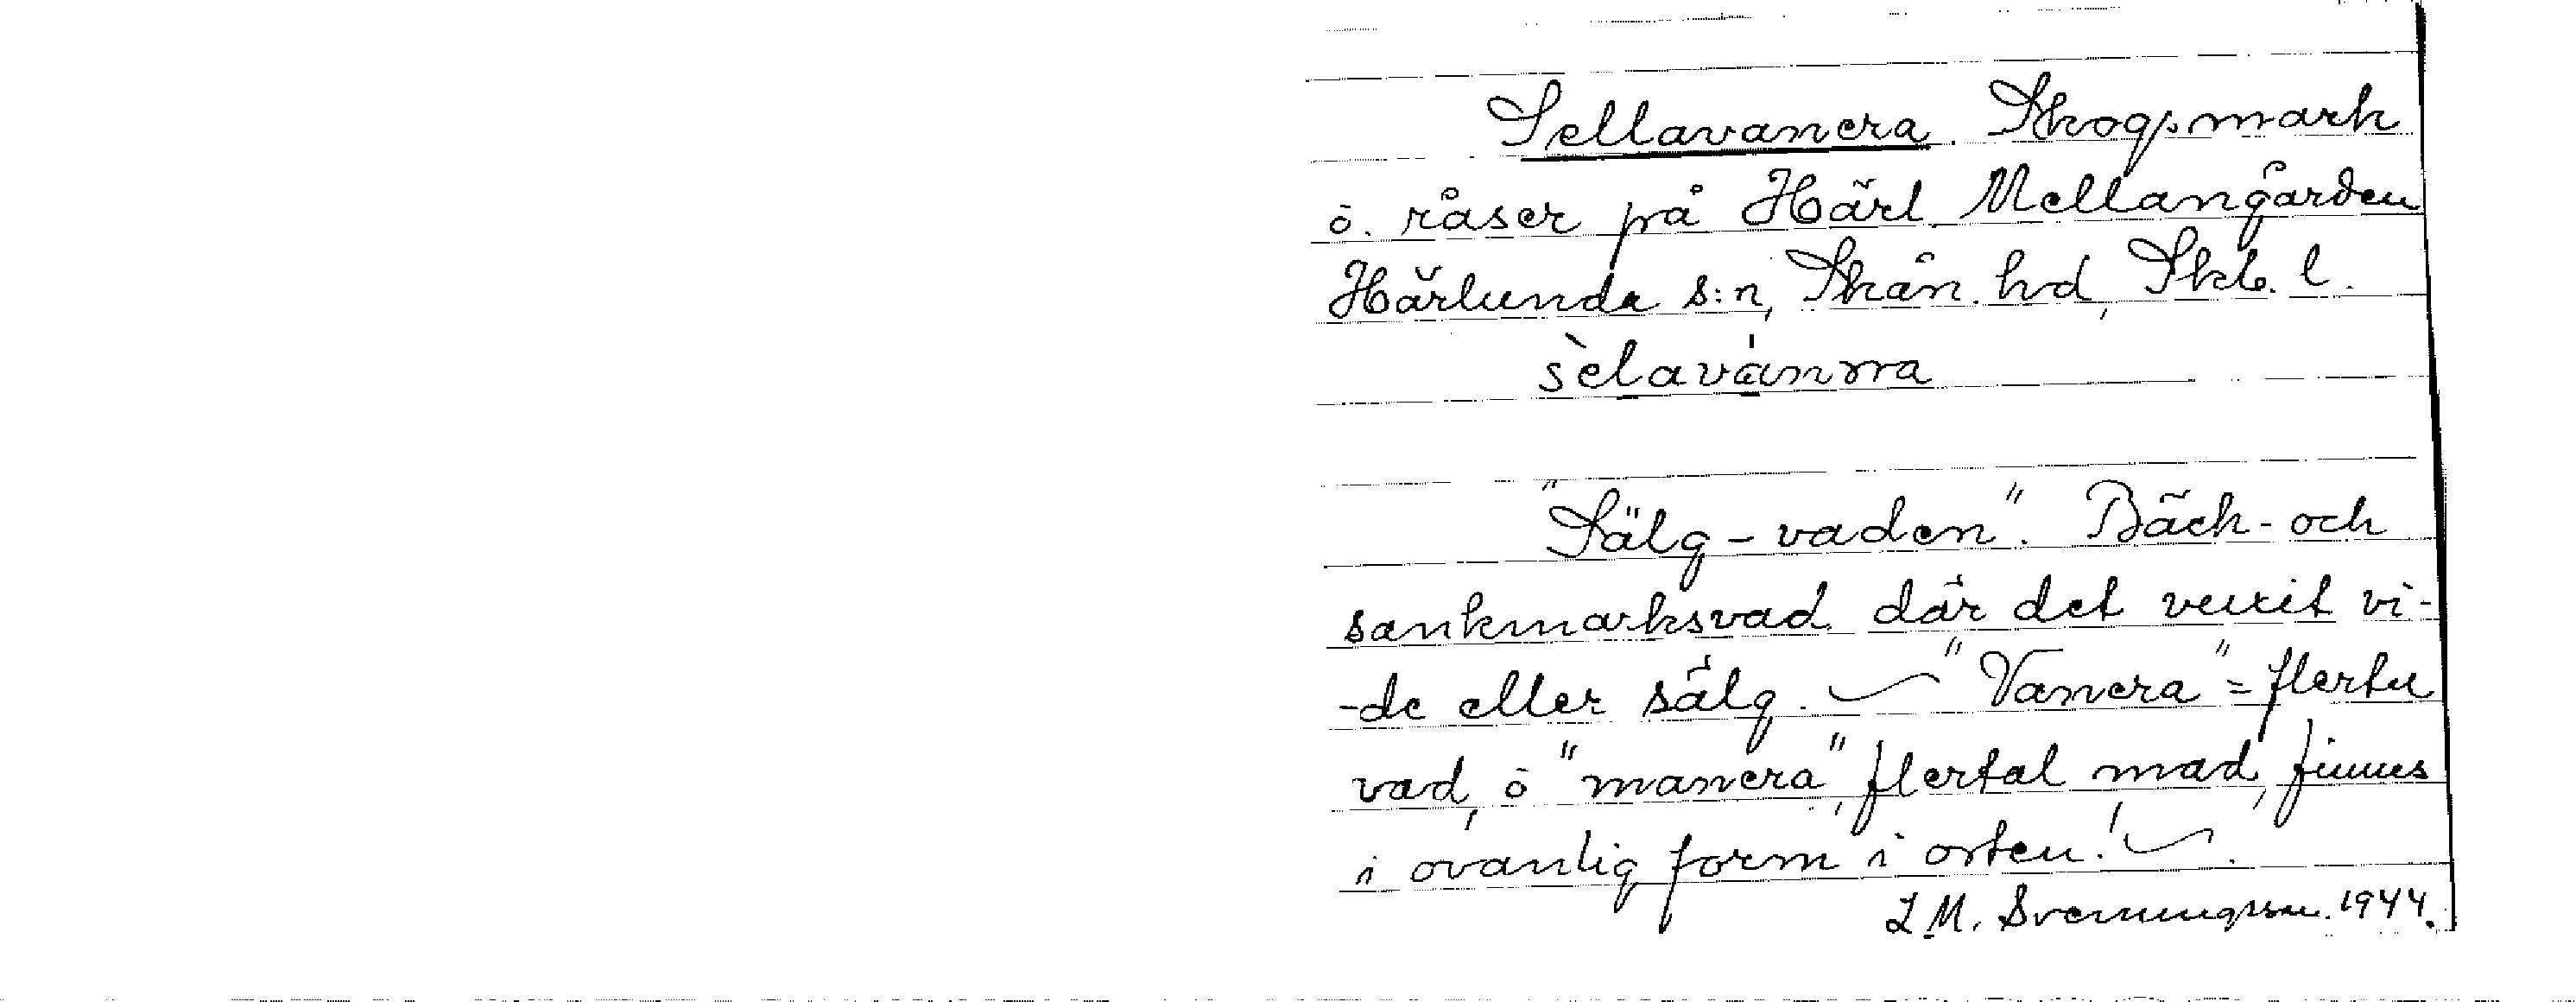 Sellavanera. Skogsmark
ö. råser på Härl. Mellangården
Härlunda s:n, Skån. hd, Skb. l.
sèlavánнra
"Sälg-vaden". Bäck- och
sankmarksvad där det vuxit vi-
-de eller sälg. — "Vanera" = flertal
vad, ö "manera", flertal mad, finnes
i ovanlig form i orten! —.
L M. Svenungsson. 1944.